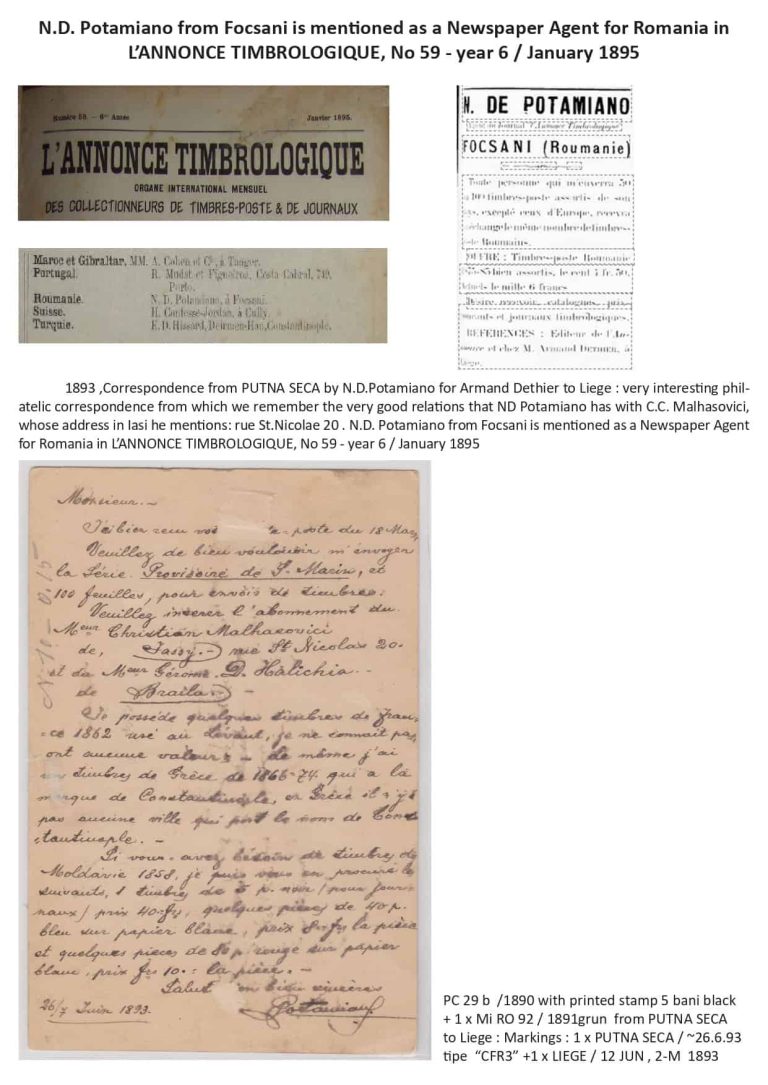 N.D. Potamiano from Focsani is mentioned as a Newspaper Agent for Romania in
L'ANNONCE TIMBROLOGIQUE, No 59 - year 6 / January 1895
Numéro 59. — 6me Année
Janvier 1895.
L'ANNONCE TIMBROLOGIQUE
ORGANE INTERNATIONAL MENSUEL
DES COLLECTIONNEURS DE TIMBRES-POSTE & DE JOURNAUX
Maroc et Gibraltar, MM. A. Cohen et Cie, à Tanger.
Portugal. R. Mudat et Figueiroa, Costa Cabral, 749,
Porto.
Roumanie. N. D. Potamiano, à Focsani.
Suisse. H. Contesse-Jordan, à Cully.
Turquie. E. D. Hissard, Deirmen-Han, Constantinople.
N. DE POTAMIANO
Agent du Journal l'Annonce Timbrologique
FOCSANI (Roumanie)
Toute personne qui m'enverra 50
à 100 timbres-poste assortis de son
pays, excepté ceux d'Europe, recevra
échange le même nombre de timbres-
poste Roumains.
OFFRE : Timbres-poste Roumanie
bien assortis, le cent 1 fr. 50,
le mille 6 francs
Désire recevoir catalogues, prix-
courants et journaux timbrologiques.
REFERENCES : Editeur de l'An-
nonce et chez M. Armand Dethier, à
Liège.
1893 ,Correspondence from PUTNA SECA by N.D.Potamiano for Armand Dethier to Liege : very interesting phil-
atelic correspondence from which we remember the very good relations that ND Potamiano has with C.C. Malhasovici,
whose address in Iasi he mentions: rue St.Nicolae 20 . N.D. Potamiano from Focsani is mentioned as a Newspaper Agent
for Romania in L'ANNONCE TIMBROLOGIQUE, No 59 - year 6 / January 1895
Monsieur. —
J'ai bien reçu vos poste du 18 Mai
Veuillez de bien vouloir m'envoyer
la Série Provisoire de S. Marin, et
100 feuilles, pour envois de timbres.
Veuillez inserer l'abonnement du
Meur Christian Malhasovici
de, Jassy. — rue St Nicolas 20.
et du Meur Gérome D. Halichia
de Braila. —
Je possède quelques timbres de Fran-
ce 1862 usé au Levant, je ne connait pas
ont aucune valeur; — de même j'ai
timbres de Grèce de 1866-74 qui a la
marque de Constantinople, en Grèce il n'y a
pas aucune ville qui port le nom de Cons
tantinople. —
Si vous avez bésoin de timbres de
Moldavie 1858, je puis vous en procurer les
suivants, 1 timbres de 5 p. noir (pour jour-
naux) prix 40 frs, quelques pièces de 40 p.
bleu sur papier blanc, prix 8 frs la pièce
et quelques pieces de 80 p rouge sur papier
blanc, prix frs 10. la pièce. —
Salut
26/7 Juin 1893.
Potamiano
PC 29 b /1890 with printed stamp 5 bani black
+ 1 x Mi RO 92 / 1891grun from PUTNA SECA
to Liege : Markings : 1 x PUTNA SECA / ~26.6.93
tipe "CFR3" +1 x LIEGE / 12 JUN , 2-M 1893